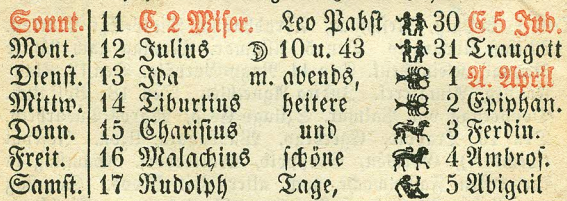 Sonnt. 11 C 2 Miser. Leo Pabst 30 E 5 Jud.
Mont. 12 Julius ☽ 10 u. 43 31 Traugott
Dienst. 13 Ida m. abends, 1 A. April
Mittw. 14 Tiburtius heitere 2 Epiphan.
Donn. 15 Charisius und 3 Ferdin.
Freit. 16 Malachius schöne 4 Ambros.
Samst. 17 Rudolph Tage, 5 Abigail